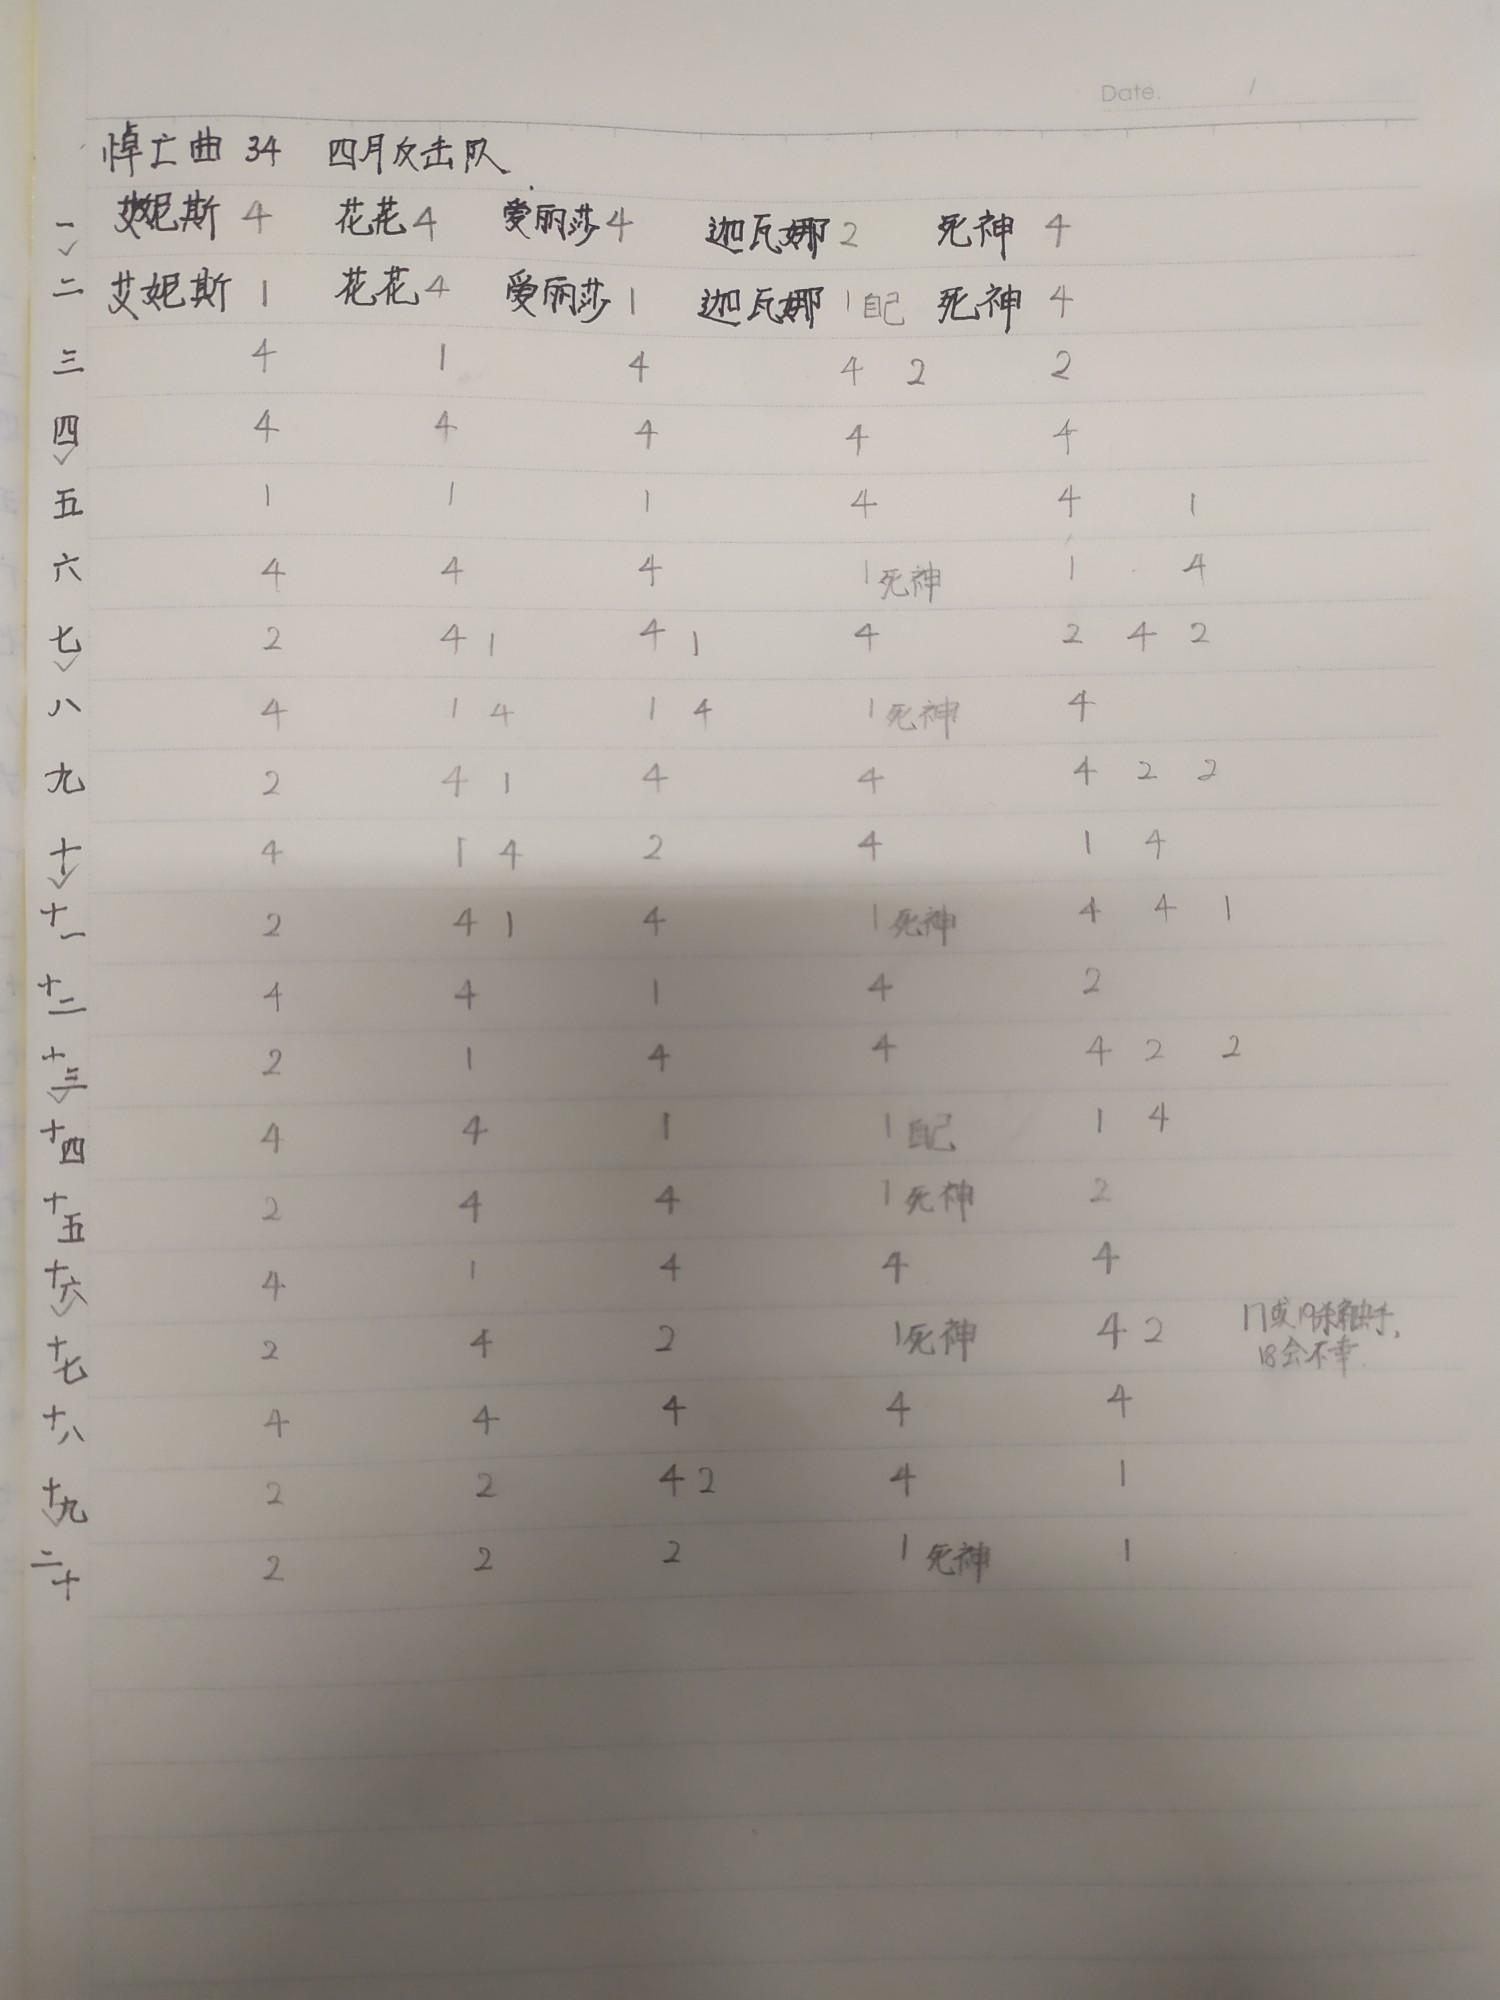 Date. /
悼亡曲 34 四月反击队
一 艾妮斯 4 花花 4 爱丽莎 4 迦瓦娜 2 死神 4
二 艾妮斯 1 花花 4 爱丽莎 1 迦瓦娜 1 自己 死神 4
三 4 1 4 4 2 2
四 4 4 4 4 4
五 1 1 1 4 4 1
六 4 4 4 1 死神 1 4
七 2 4 1 4 1 4 2 4 2
八 4 1 4 1 4 1 死神 4
九 2 4 1 4 4 4 2 2
十 4 1 4 2 4 1 4
十一 2 4 1 4 1 死神 4 4 1
十二 4 4 1 4 2
十三 2 1 4 4 4 2 2
十四 4 4 1 1 自己 1 4
十五 2 4 4 1 死神 2
十六 4 1 4 4 4
十七 2 4 2 1 死神 4 2 17或19杀触手,
18会不幸.
十八 4 4 4 4 4
十九 2 2 4 2 4 1
二十 2 2 2 1 死神 1